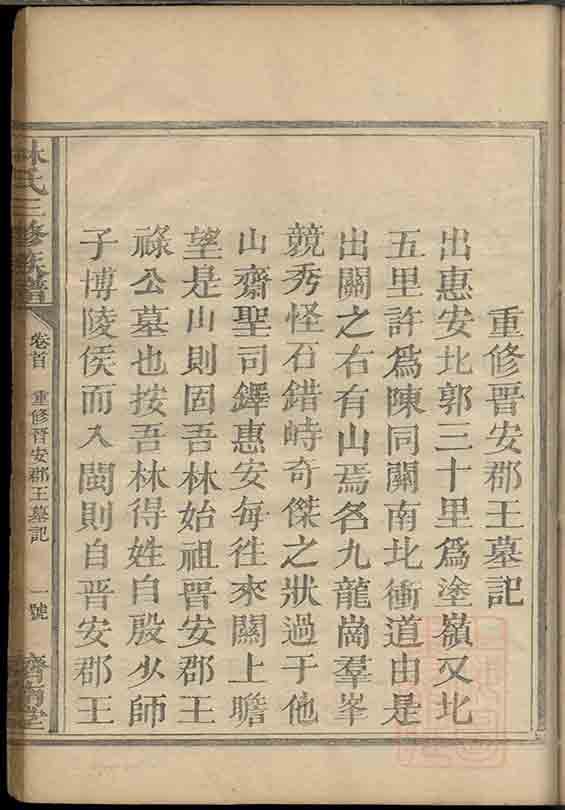 重修晉安郡王墓記
出惠安北郭三十里為塗嶺又北
五里許為陳同關南北衝道由是
出關之右有山焉名九龍崗羣峯
競秀怪石錯峙奇傑之狀過于他
山齋聖司鐸惠安每徃來關上瞻
望是山則固吾林始祖晉安郡王
祿公墓也按吾林得姓自殷少師
子博陵侯而入閩則自晉安郡王
林氏三修族譜
卷首
重修晉安郡王墓記
一號
濟南堂